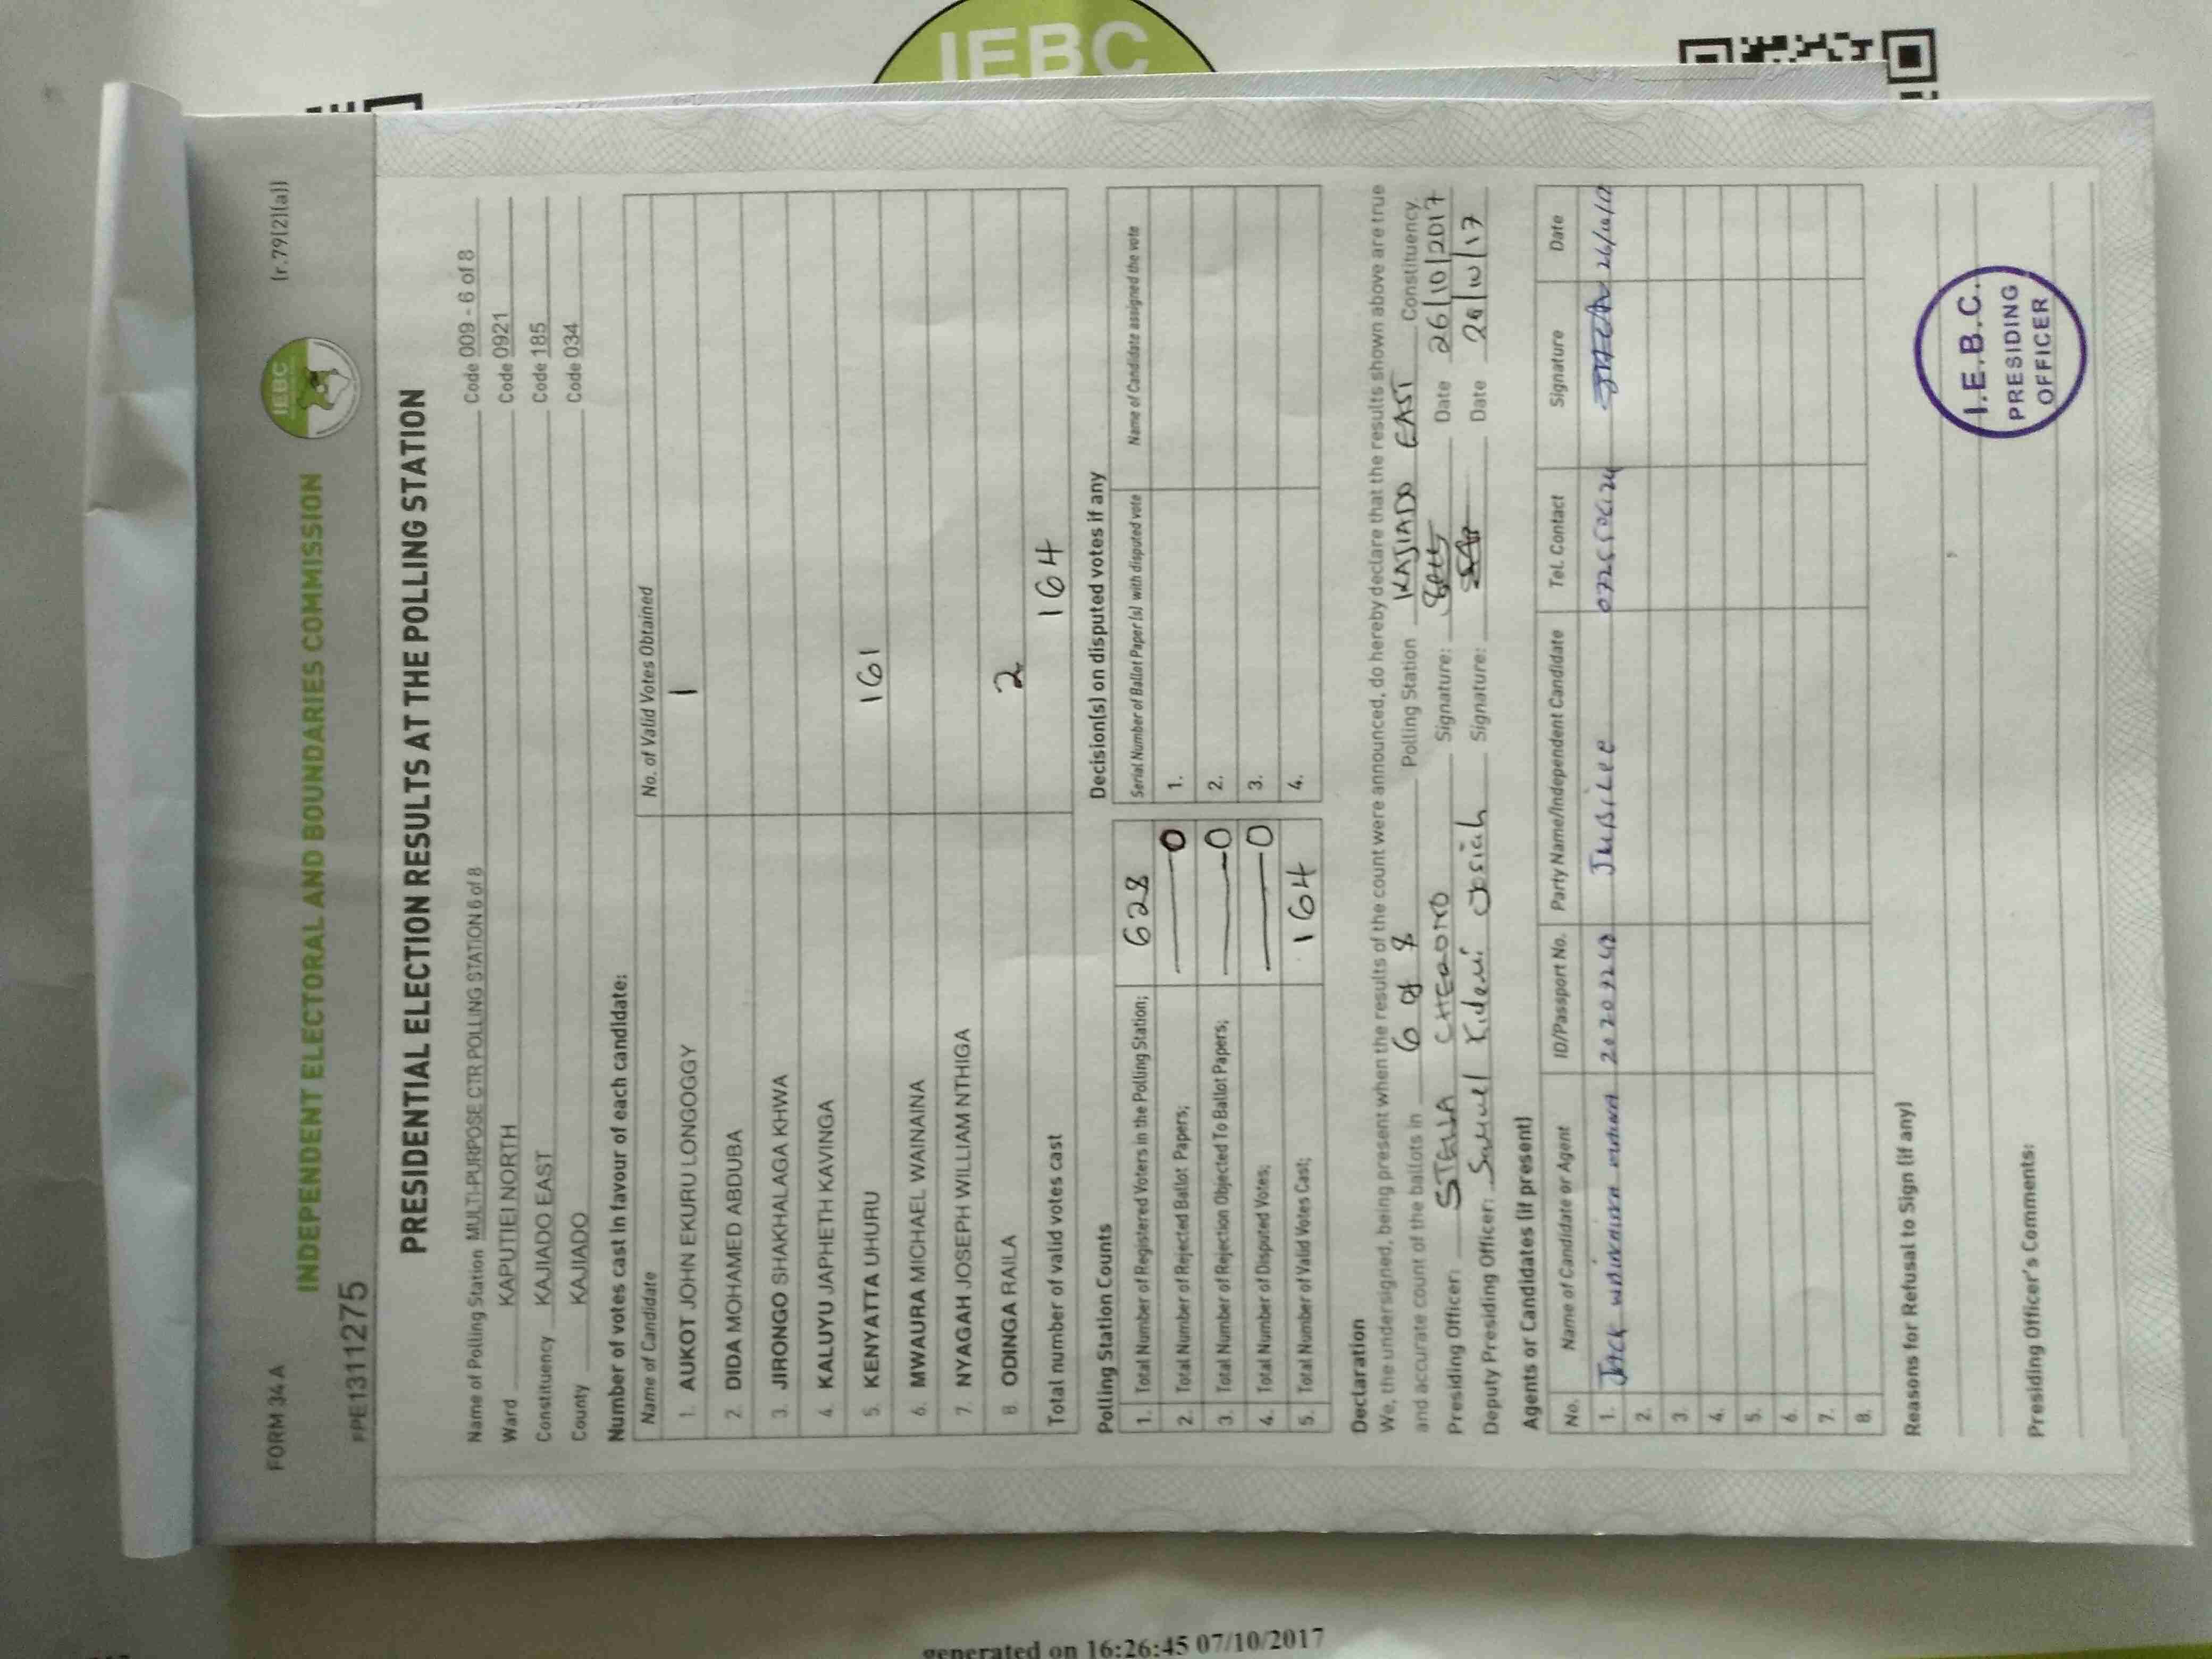 IEBC
FORM 34 A
(r.79(2)(a))
INDEPENDENT ELECTORAL AND BOUNDARIES COMMISSION
IEBC
PPE1311275
PRESIDENTIAL ELECTION RESULTS AT THE POLLING STATION
Name of Polling Station MULTI-PURPOSE CTR POLLING STATION 6 of 8 Code 009 - 6 of 8
Ward KAPUTIEI NORTH Code 0921
Constituency KAJIADO EAST Code 185
County KAJIADO Code 034
Number of votes cast in favour of each candidate:
Name of Candidate No. of Valid Votes Obtained
1. AUKOT JOHN EKURU LONGOGGY 1
2. DIDA MOHAMED ABDUBA
3. JIRONGO SHAKHALAGA KHWA
4. KALUYU JAPHETH KAVINGA
5. KENYATTA UHURU 161
6. MWAURA MICHAEL WAINAINA
7. NYAGAH JOSEPH WILLIAM NTHIGA
8. ODINGA RAILA 2
Total number of valid votes cast 164
Polling Station Counts
1. Total Number of Registered Voters in the Polling Station; 628
2. Total Number of Rejected Ballot Papers; 0
3. Total Number of Rejection Objected To Ballot Papers; 0
4. Total Number of Disputed Votes; 0
5. Total Number of Valid Votes Cast; 164
Decision(s) on disputed votes if any
Serial Number of Ballot Paper (s) with disputed vote Name of Candidate assigned the vote
1.
2.
3.
4.
Declaration
We, the undersigned, being present when the results of the count were announced, do hereby declare that the results shown above are true
and accurate count of the ballots in 6 of 8 Polling Station KAJIADO EAST Constituency.
Presiding Officer: STELLA Signature: Date 26/10/2017
Deputy Presiding Officer: Samuel Josiah Signature: Date 26/10/17
Agents or Candidates (if present)
No. Name of Candidate or Agent ID/Passport No. Party Name/Independent Candidate Tel. Contact Signature Date
1. Jubilee
2.
3.
4.
5.
6.
7.
8.
Reasons for Refusal to Sign (if any)
Presiding Officer's Comments:
I.E.B.C.
PRESIDING
OFFICER
generated on 16:26:45 07/10/2017